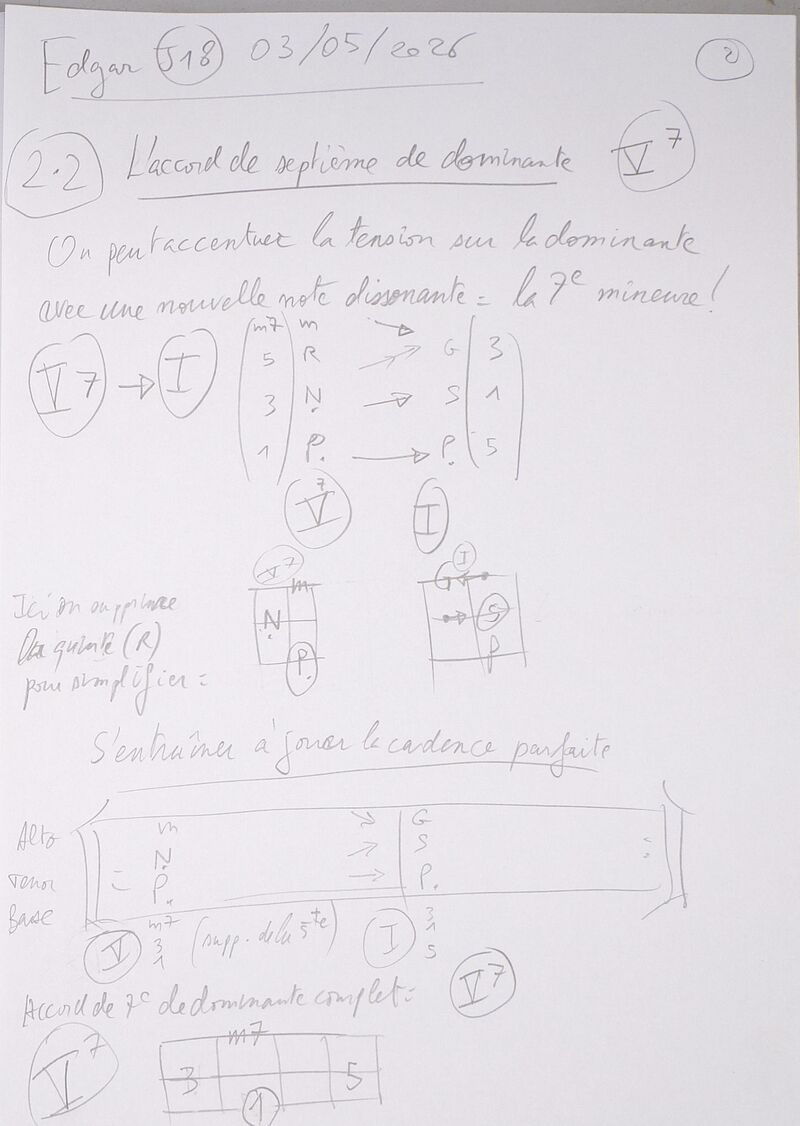 Edgar J18 03/05/2026 2
2.2 L'accord de septième de dominante V7
On peut accentuer la tension sur la dominante
avec une nouvelle note dissonante = la 7e mineure!
V7 → I
m7 m →
5 R → G 3
3 N. → S 1
1 P. → P. 5
V7 I
V7 I
m G
N. S
P. P
Ici on supprime
la quinte (R)
pour simplifier =
S'entraîner à jouer la cadence parfaite
Alto m → G
Tenor N. → S
Basse P. → P.
V m7 3 1 (supp. de la 5te) I 3 1 5
Accord de 7e de dominante complet = V7
V7
m7
3 5
1